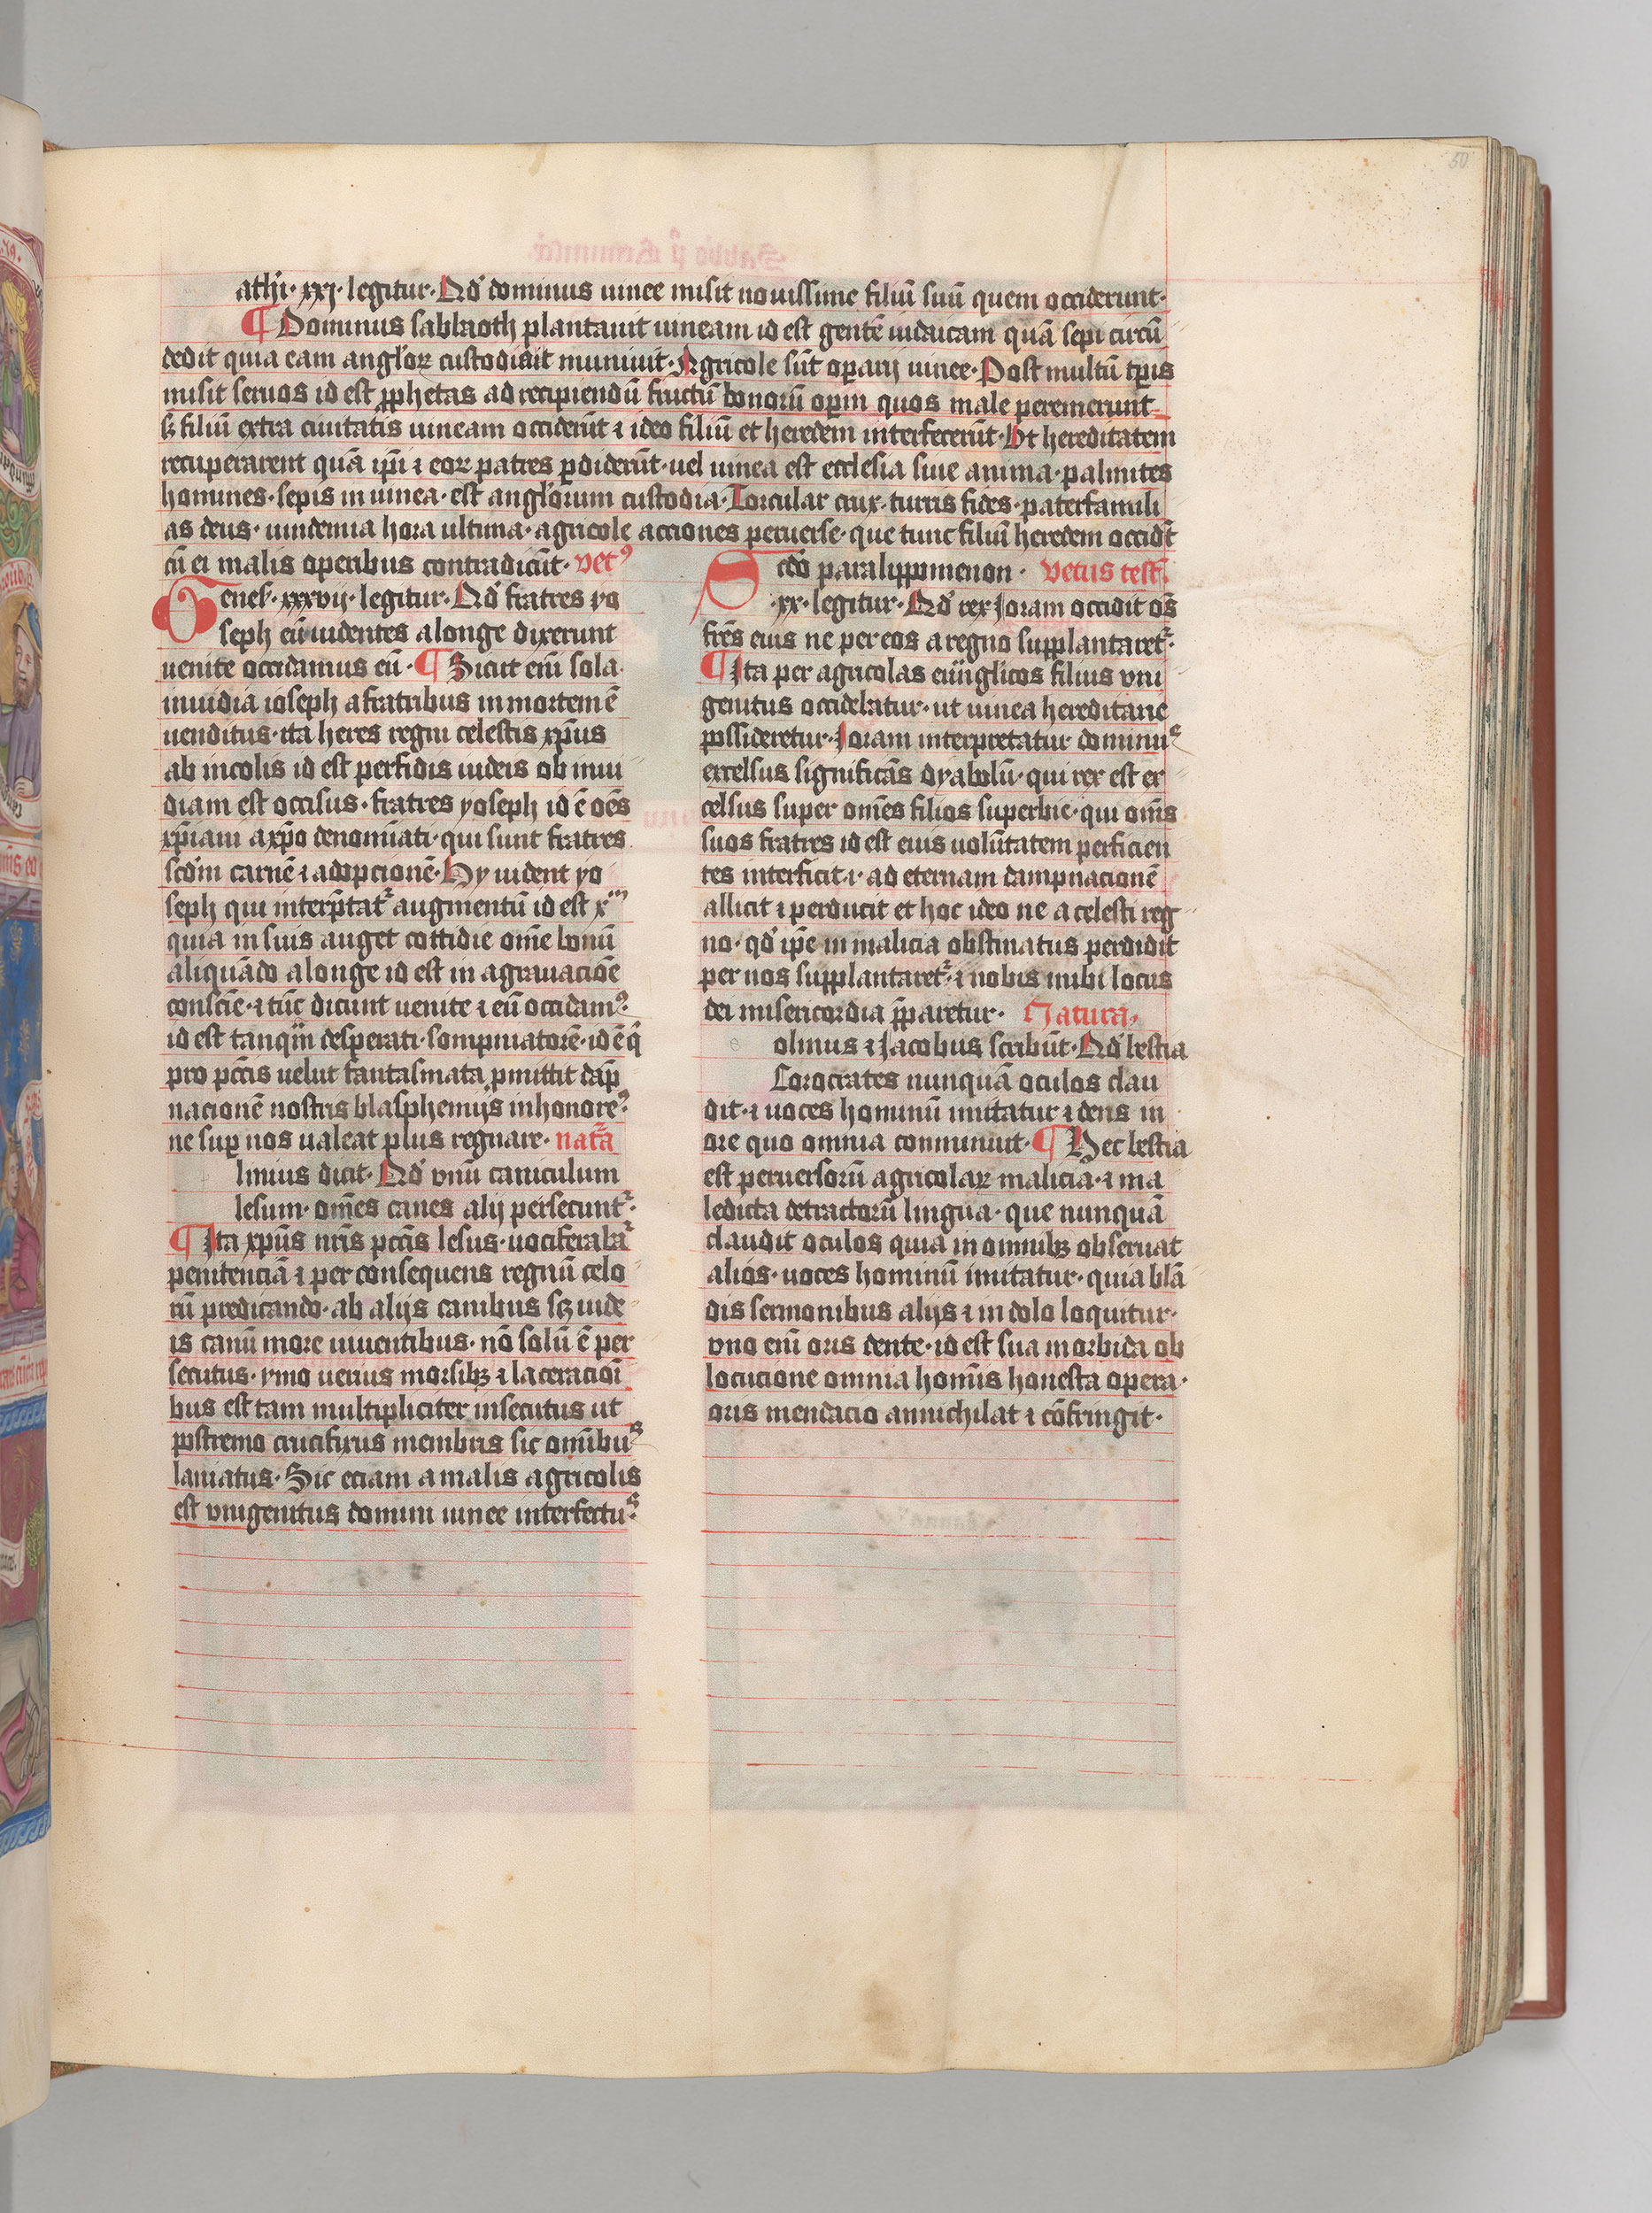 50
athi · xxj · legitur · Qd' dominus uinee misit nouissime filiū suū quem occiderunt ·
¶ Dominus sabbaoth plantauit uineam id est gentē iudaicam quā sepi circū
dedit quia eam angl'oꝝ custodiait muniuit · Agricole sūt oꝑarij uinee · Post multū tꝑis
misit seruos id est ꝓphetas ad recipiendū fructū bonorū oꝑm quos male peremerunt
sꝫ filiū extra ciuitatis uineam occiderūt ⁊ ideo filiū et heredem interfecerūt · Ut hereditatem
recuperarent quā ip̄i ⁊ eoꝝ patres ꝑdiderūt · uel uinea est ecclesia siue anima · palmites
homines · sepis in uinea · est angl'orum custodia · Torcular crux · turris fides · paterfamili
as deus · uindemia hora ultima · agricole acciones peruerse · que tunc filiū heredem occidūt
cū ei malis operibus contradicūt · vetꝰ
Genes' · xxxvij · legitur · Qd' fratres yo
seph eū uidentes a longe dixerunt
uenite occidamus eū · ¶ Sicut eni̅ sola
inuidia ioseph a fratribus in mortem ē
uenditus · ita heres regni celestis xp̄us
ab incolis id est perfidis iudeis ob inui
diam est occisus · fratres yoseph id ē oēs
xp̄iani a xp̄o denomi̅ati · qui sunt fratres
scd̄m carnē ⁊ adopcionē · Hy uident yo
seph qui interp̄tatᷣ augmentū id est x
quia in suis auget cottidie om̄e bonū
aliquādo a longe id est in agrauacio̅e
consciē · ⁊ tūc dicunt uenite ⁊ eū occidamꝰ ·
id est tanqᷓm desperati · sompniatorē · id ē qͥ
pro pc̄cis uelut fantasmata ꝓmittit dāp
nacionē nostris blasphemijs inhonoreꝰ ·
ne suꝑ nos ualeat plus regnare · natᷓra
linius dicit · Qd' vnū caniculum
lesum · om̄es canes alij persecuntᷣ ·
¶ Ita xp̄us nr̄is pc̄cis lesus · uociferabaᷣ
penitenciā ⁊ per consequens regnū celo
rū predicando · ab alijs canibus sꝫ iude
is canū more uiuentibus · nō solū ē per
secutus · ymo uerius morsibꝫ ⁊ laceracioi̅
bus est tam multipliciter insecutus ut
postremo crucifixus membris sic om̄ibus
laniatus · Sic eciam a malis agricolis
est vnigenitus domini uinee interfectus ·
Scd'o paralippomenon · vetus test̄ ·
· xx · legitur · Qd' rex Joram occidit oēs
fr̄es eius ne per eos a regno supplantaretᷣ ·
¶ Ita per agricolas euᷓnglicos filius vni
genitus occidebatur · ut uinea hereditarie
possideretur · Joram interpretatur dominus
excelsus significās dyabolū · qui rex est ex
celsus super om̄es filios superbie · qui om̄s
suos fratres id est eius uolūtatem perficien
tes interficit · ⁊ ad eternam dampnacionē
allicit ⁊ perducit et hoc ideo ne a celesti reg
no · qd' ip̄e in malicia obstinatus perdidit
per nos supplantaretᷣ · ⁊ nobis inibi locus
dei misericordia p̄paretur · Natura ·
olinus ⁊ Jacobus scribūt · Qd' bestia
Corocrates nunquā oculos clau
dit · ⁊ uoces hominū imitatur ⁊ dens in
ore quo omnia communiut · ¶ Hec bestia
est peruersorū agricolaꝝ malicia · ⁊ ma
ledicta detractorū lingua · que nunquā
claudit oculos quia in omnibꝫ obseruat
alios · uoces hominū imitatur · quia blā
dis sermonibus alijs ⁊ in dolo loquitur ·
vno eni̅ oris dente · id est sua morbida ob
locucione omnia homi̅s honesta opera ·
oris mendacio annichilat ⁊ cōfringit ·